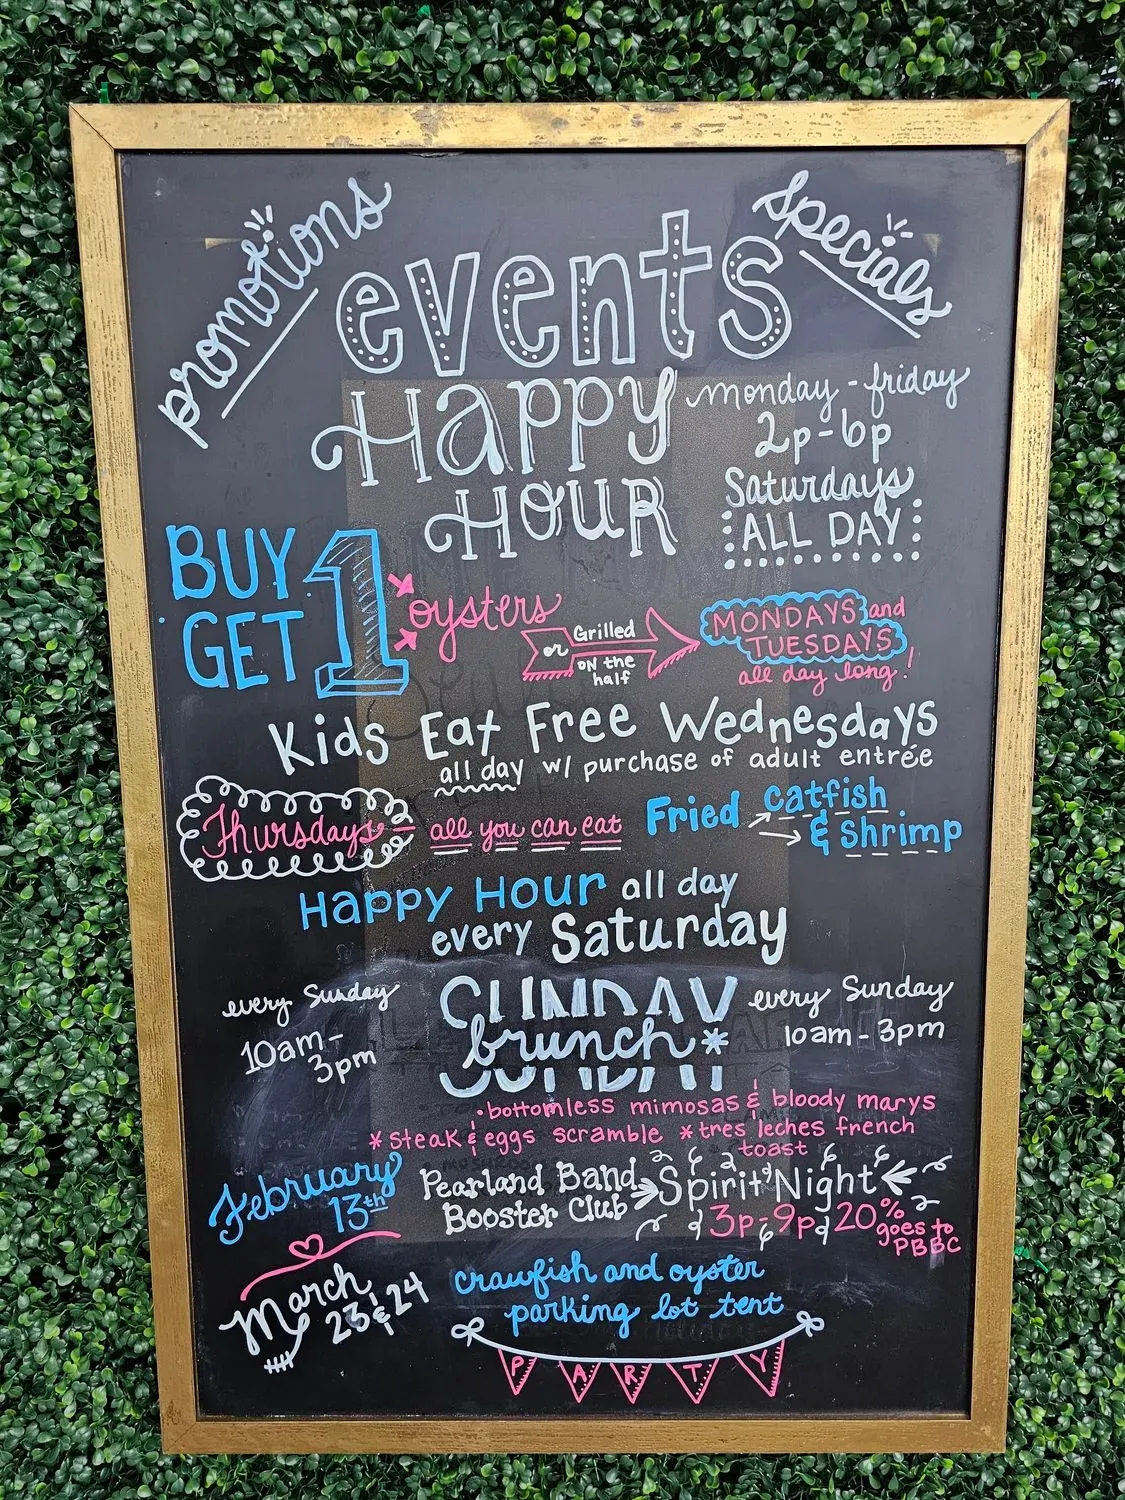 promotions
events
specials
Happy
Hour
monday - friday
2p-6p
Saturdays
ALL DAY
BUY 1
GET 1
oysters
Grilled
or
on the
half
MONDAYS and
TUESDAYS
all day long!
Kids Eat Free Wednesdays
all day w/ purchase of adult entrée
Thursdays - all you can eat
Fried catfish
& Shrimp
Happy Hour all day
every Saturday
every Sunday
10am -
3pm
SUNDAY
brunch*
every Sunday
10am - 3pm
• bottomless mimosas & bloody marys
* steak & eggs scramble * tres leches french
toast
February
13th
Pearland Band
Booster Club
Spirit Night
3p-9p 20%
goes to
PBBC
March
23 & 24
crawfish and oyster
parking lot tent
PARTY